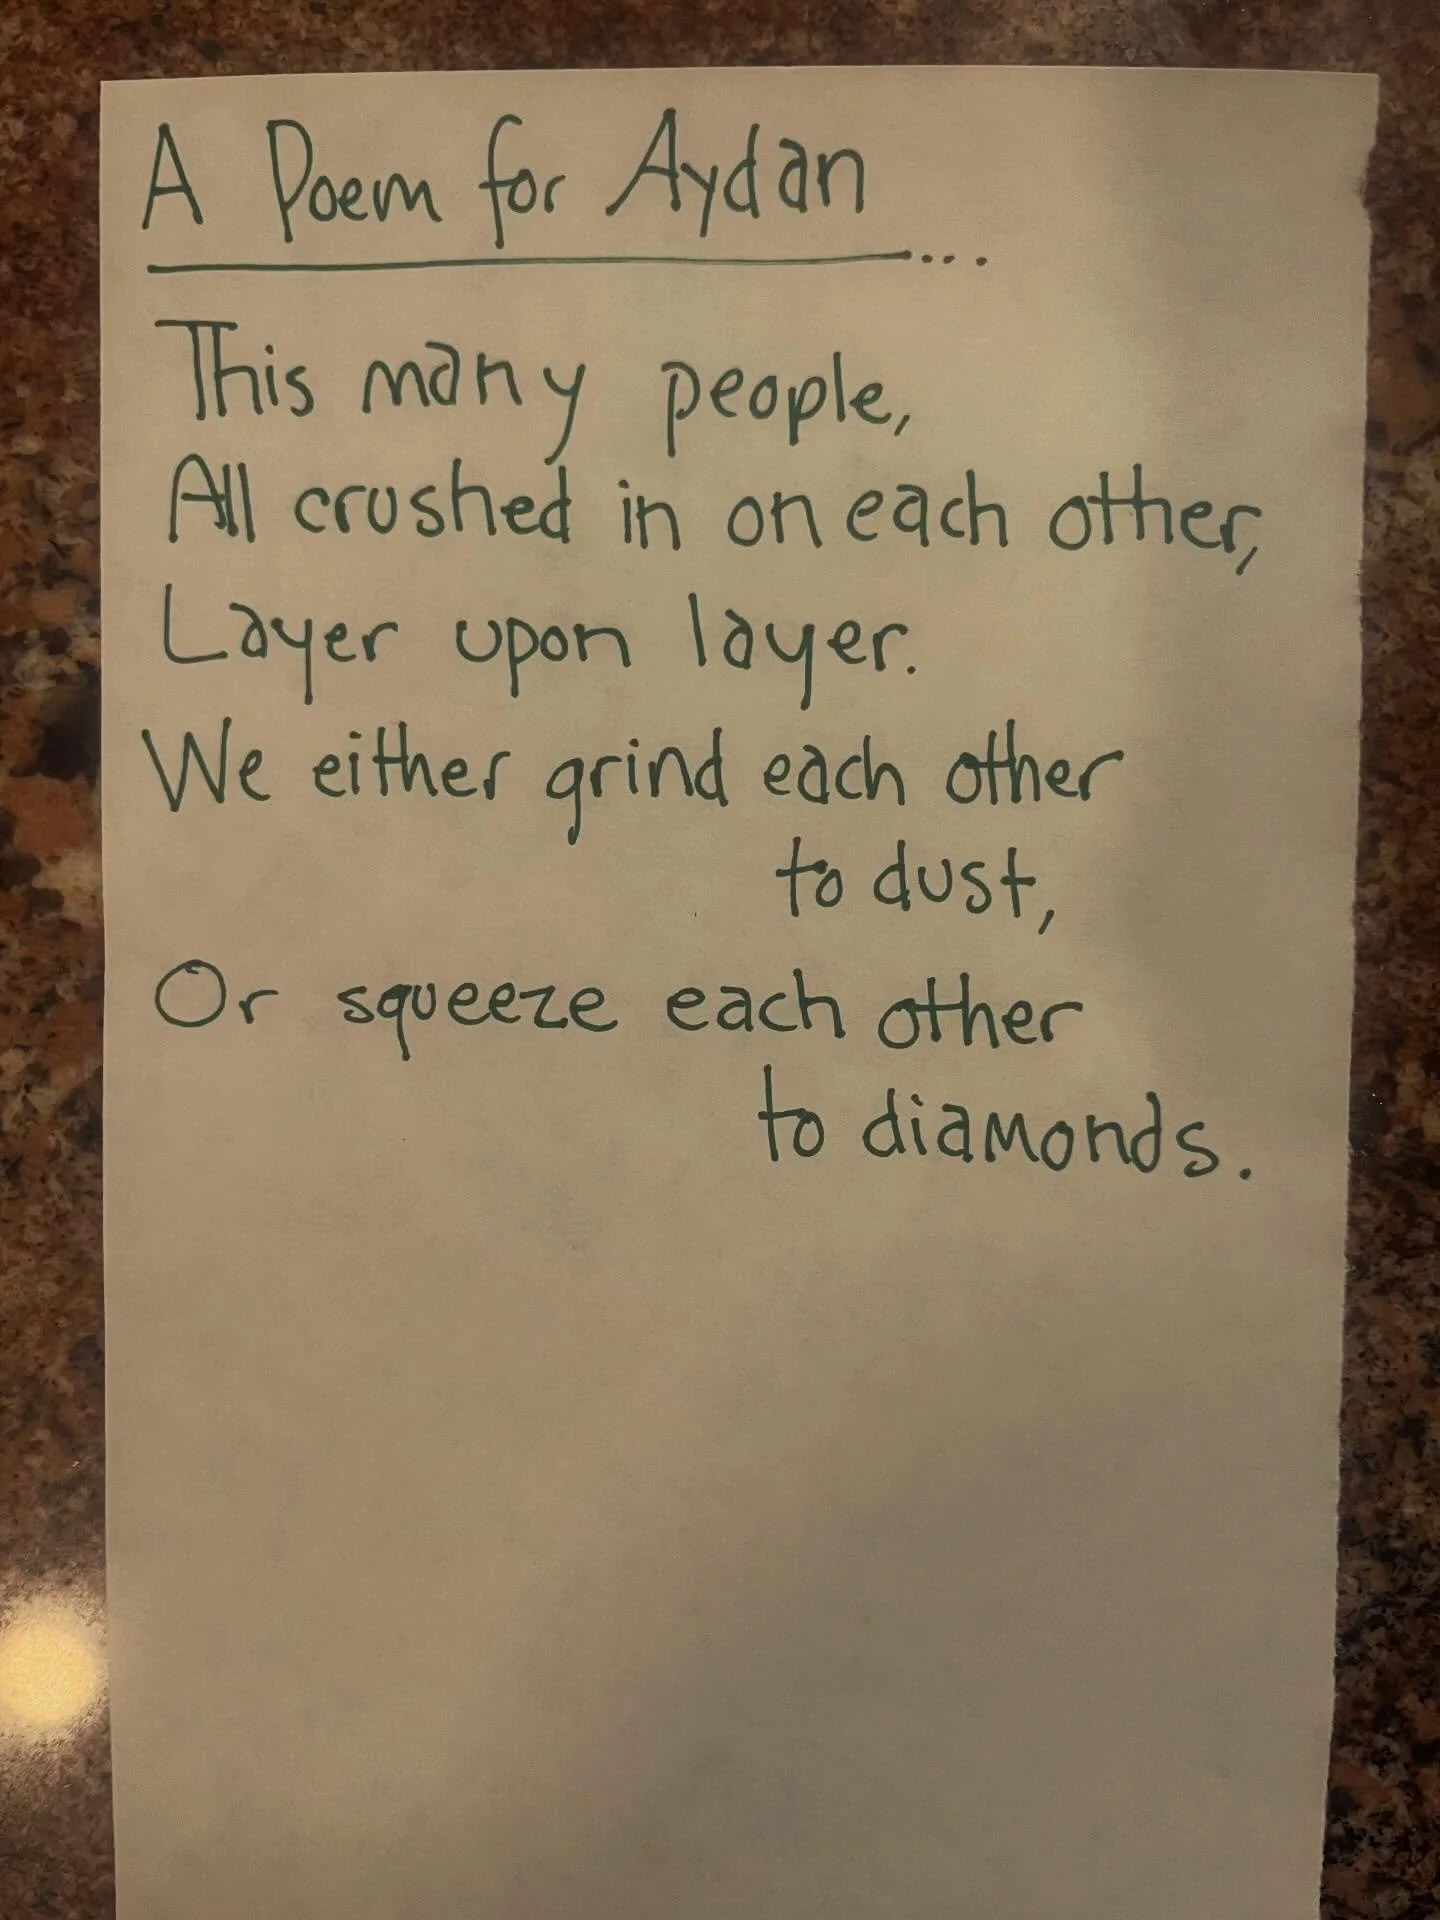 A Poem for Aydan...
This many people,
All crushed in on each other,
Layer upon layer.
We either grind each other
to dust,
Or squeeze each other
to diamonds.